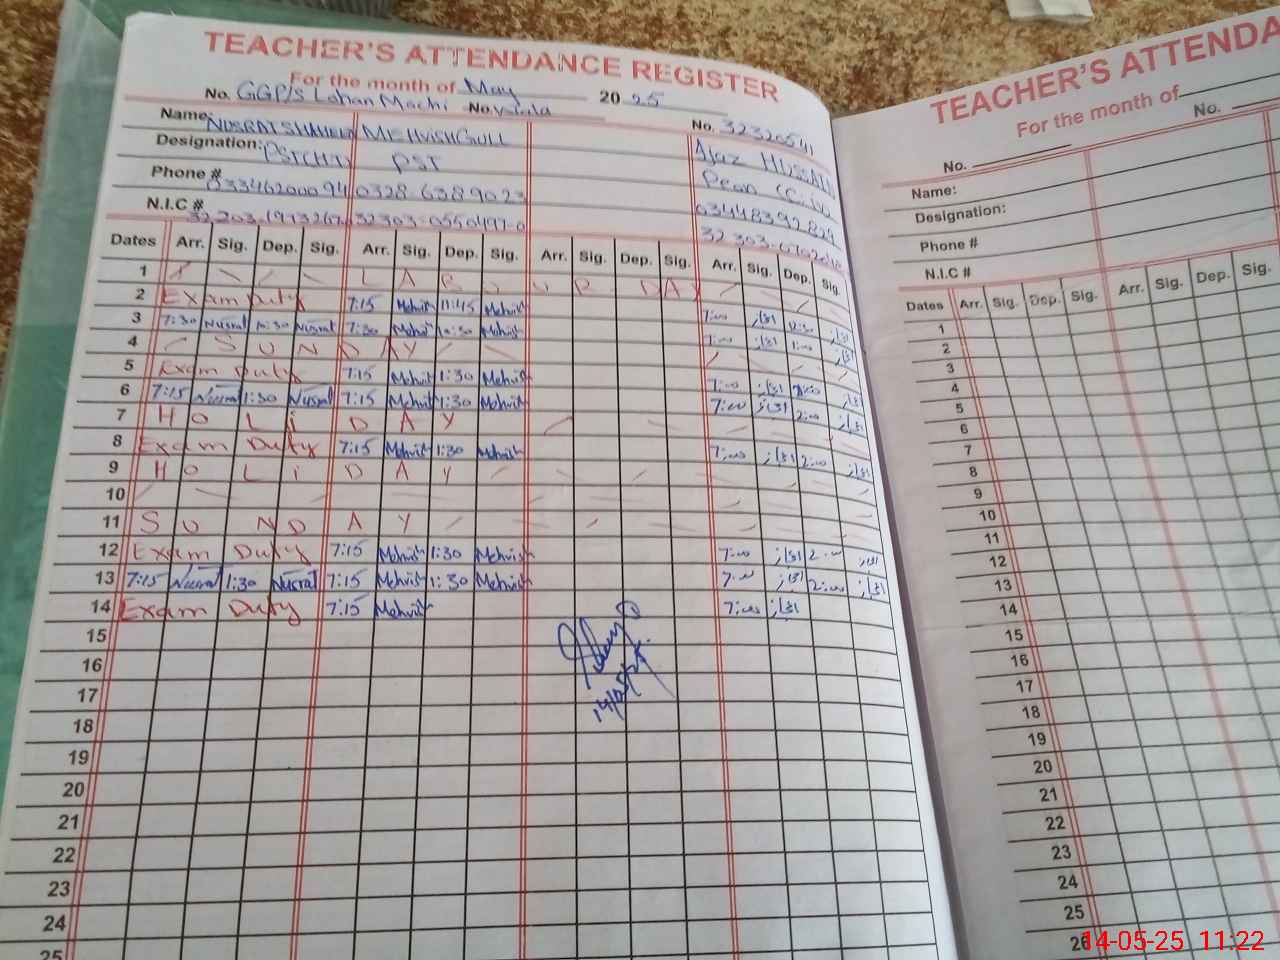 TEACHER'S ATTENDANCE REGISTER
For the month of May 2025
No. GGP/S Lohan Machi No. No. 32320541
Name: NUSRAT SHAHEEN MEHVISH GULL Ajaz HUSSAIN
Designation: PST(HT) PST Peon
Phone # 03346200094 0328-6389023 03448392829
N.I.C # 32303-0550497-0
Dates Arr. Sig. Dep. Sig. Arr. Sig. Dep. Sig. Arr. Sig. Dep. Sig. Arr. Sig. Dep. Sig.
1 L A B O U R D A Y
2 Exam Duty 7:15 Mehvish 11:45 Mehvish 7:00 اعجاز 12:00 اعجاز
3 7:30 Nusrat 10:30 Nusrat 7:30 Mehvish 10:30 Mehvish 7:00 اعجاز 1:00 اعجاز
4 S U N D A Y
5 Exam Duty 7:15 Mehvish 1:30 Mehvish 7:00 اعجاز 2:00 اعجاز
6 7:15 Nusrat 1:30 Nusrat 7:15 Mehvish 1:30 Mehvish 7:00 اعجاز 2:00 اعجاز
7 H O L i D A Y
8 Exam Duty 7:15 Mehvish 1:30 Mehvish 7:00 اعجاز 2:00 اعجاز
9 H O L i D A Y
10
11 S U N D A Y
12 Exam Duty 7:15 Mehvish 1:30 Mehvish 7:00 اعجاز 2:00 اعجاز
13 7:15 Nusrat 1:30 Nusrat 7:15 Mehvish 1:30 Mehvish 7:00 اعجاز 2:00 اعجاز
14 Exam Duty 7:15 Mehvish 7:00 اعجاز
15
16
17
14/05/25
18
19
20
21
22
23
24
25
TEACHER'S ATTENDA
For the month of
No. No.
Name:
Designation:
Phone #
N.I.C #
Dates Arr. Sig. Dep. Sig. Arr. Sig. Dep. Sig.
1
2
3
4
5
6
7
8
9
10
11
12
13
14
15
16
17
18
19
20
21
22
23
24
25
26
14-05-25 11:22